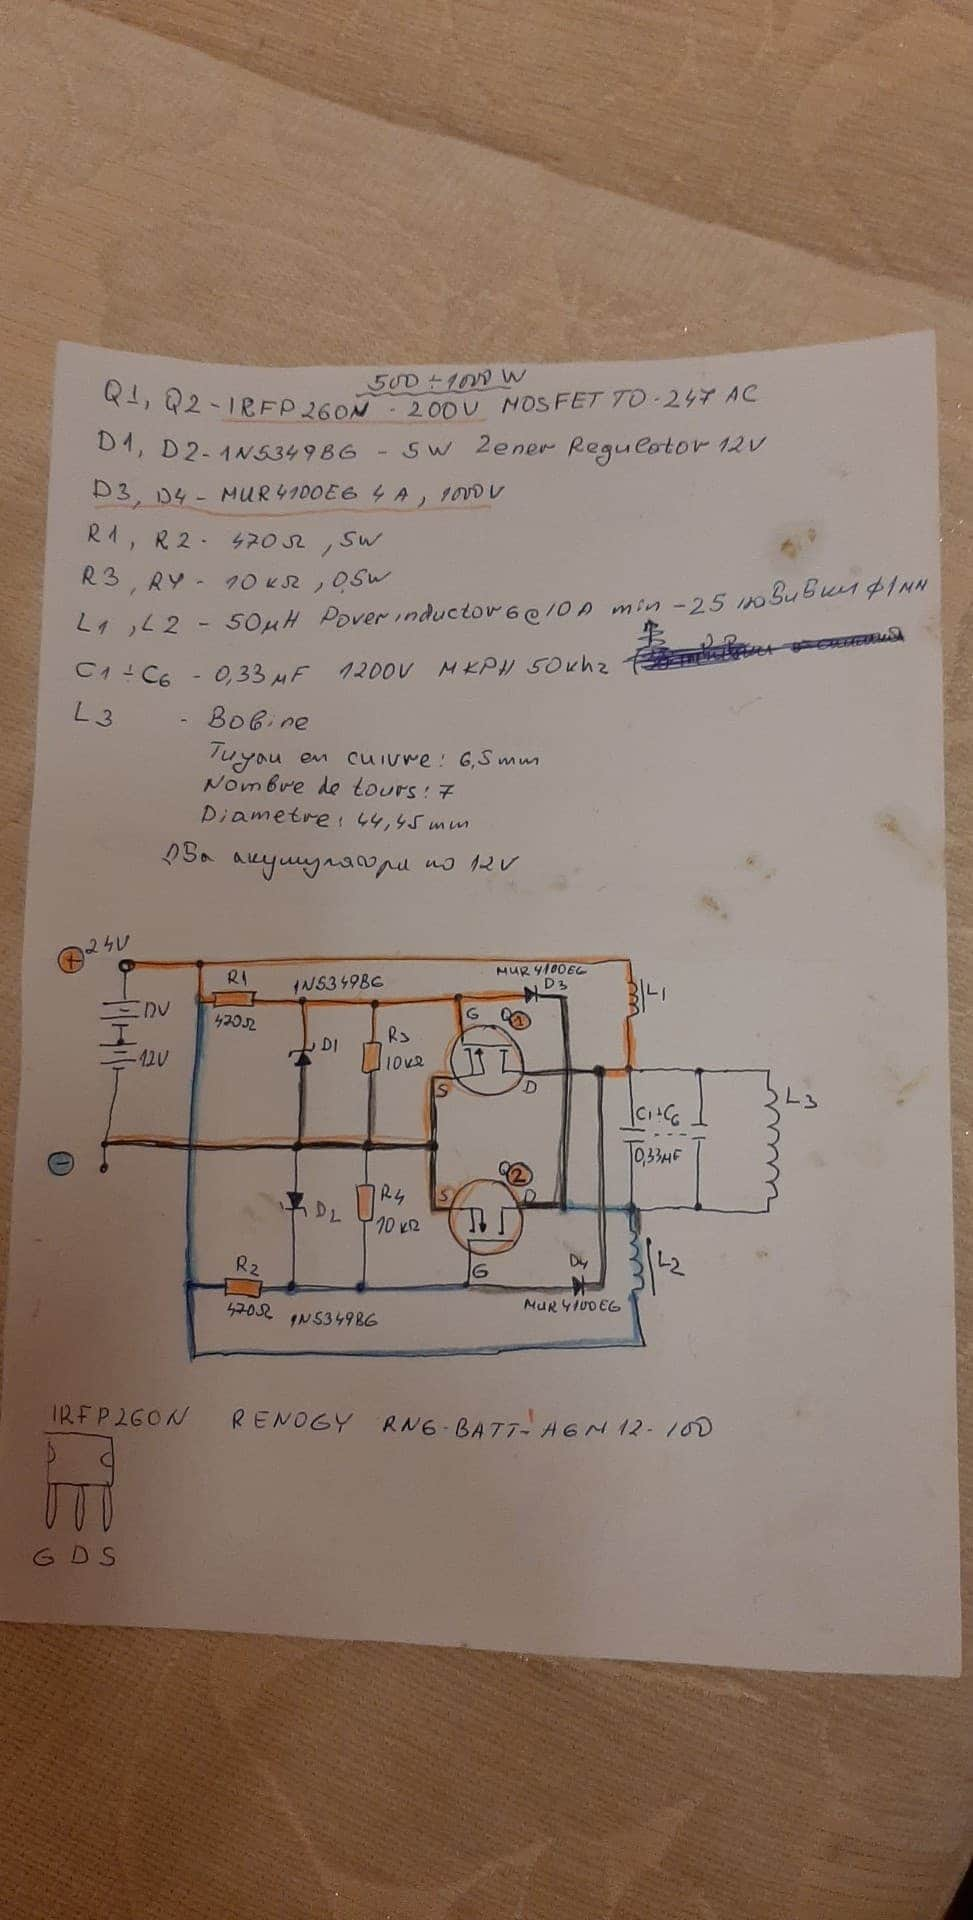 500 ÷ 1000 W
Q1, Q2 - IRFP260N - 200V MOSFET TO-247 AC
D1, D2 - 1N5349BG - 5W Zener Regulator 12V
D3, D4 - MUR4100EG 4A, 1000V
R1, R2 - 470Ω, 5W
R3, R4 - 10KΩ, 0,5W
L1, L2 - 50μH Power inductor 6@10A min - 25 навивки ф1мм
C1÷C6 - 0,33μF 1200V MKPH 50khz
L3 - Bobine
Tuyau en cuivre: 6,5mm
Nombre de tours: 7
Diametre: 44,45mm
Два акумулатора по 12V
+ 24V
MUR4100EG
D3
R1
1N5349BG
L1
12V
470Ω
D1
R3
10KΩ
G
Q1
12V
S
D
C1÷C6
L3
0,33μF
-
Q2
D2
R4
10KΩ
S
D
R2
G
D4
L2
470Ω
1N5349BG
MUR4100EG
IRFP260N RENOGY RNG-BATT-AGM12-100
G D S